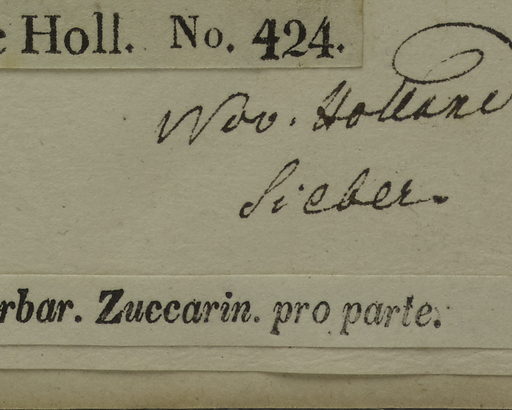 e Holl. No. 424.
Nov. Holland
Sieber.
rbar. Zuccarin. pro parte.